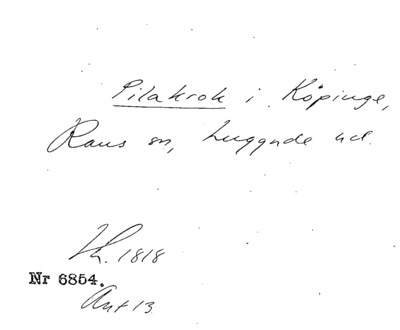 Pilakrok i Köpinge,
Raus sn, Luggude hd.
Th. 1818
Nr 6854.
Ant 13